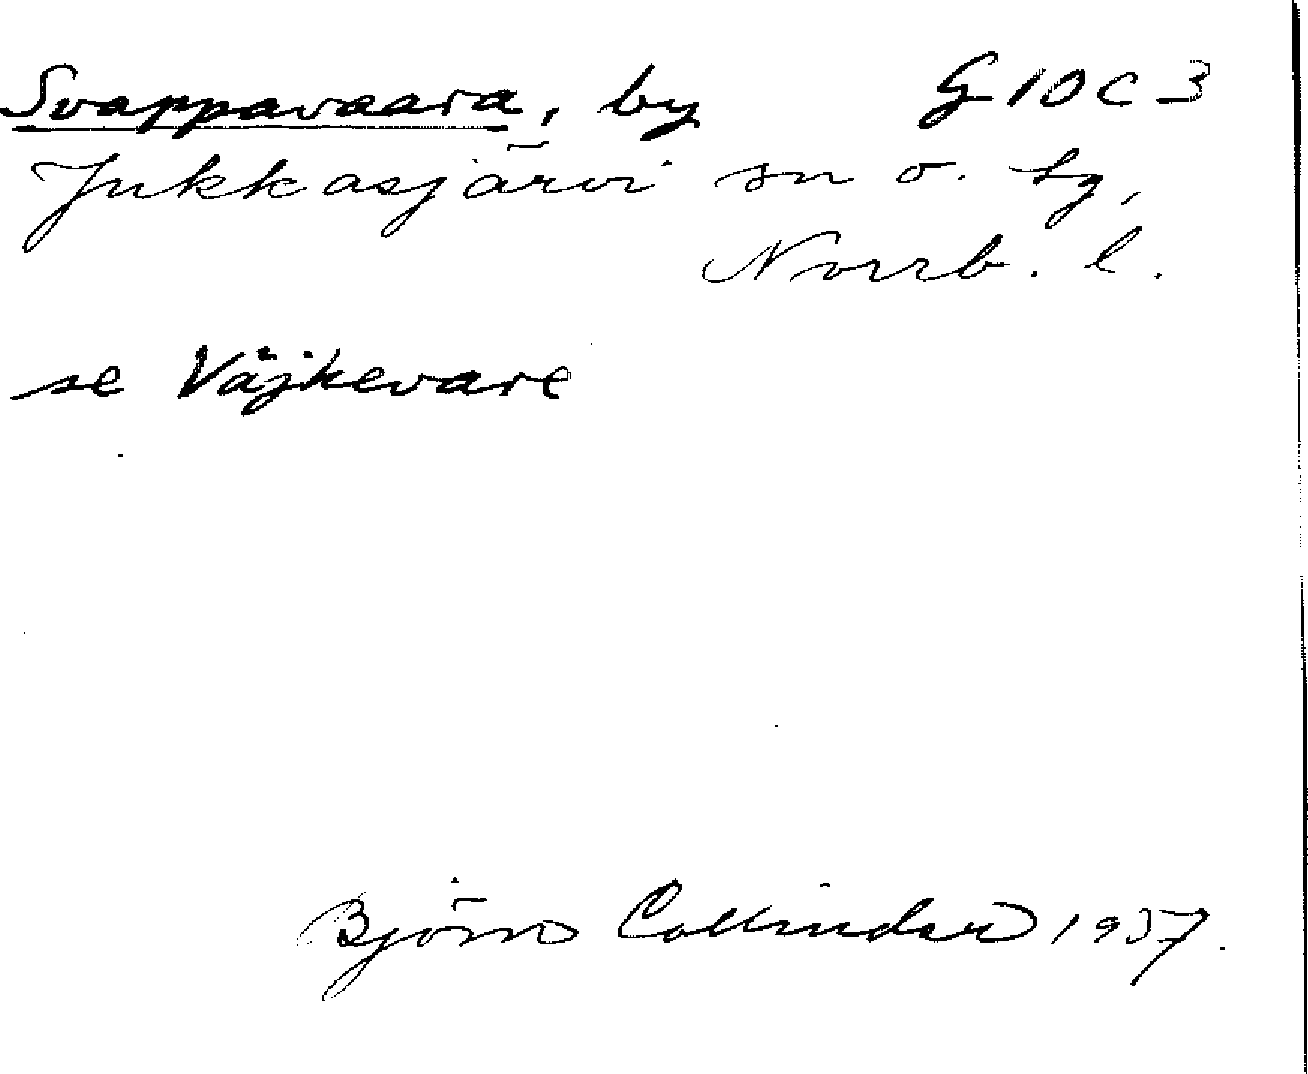 Svappavaara, by G 10 C 3
Jukkasjärvi sn o. tg,
Norrb. l.
se Väjkevare
Björn Collinder 1957.